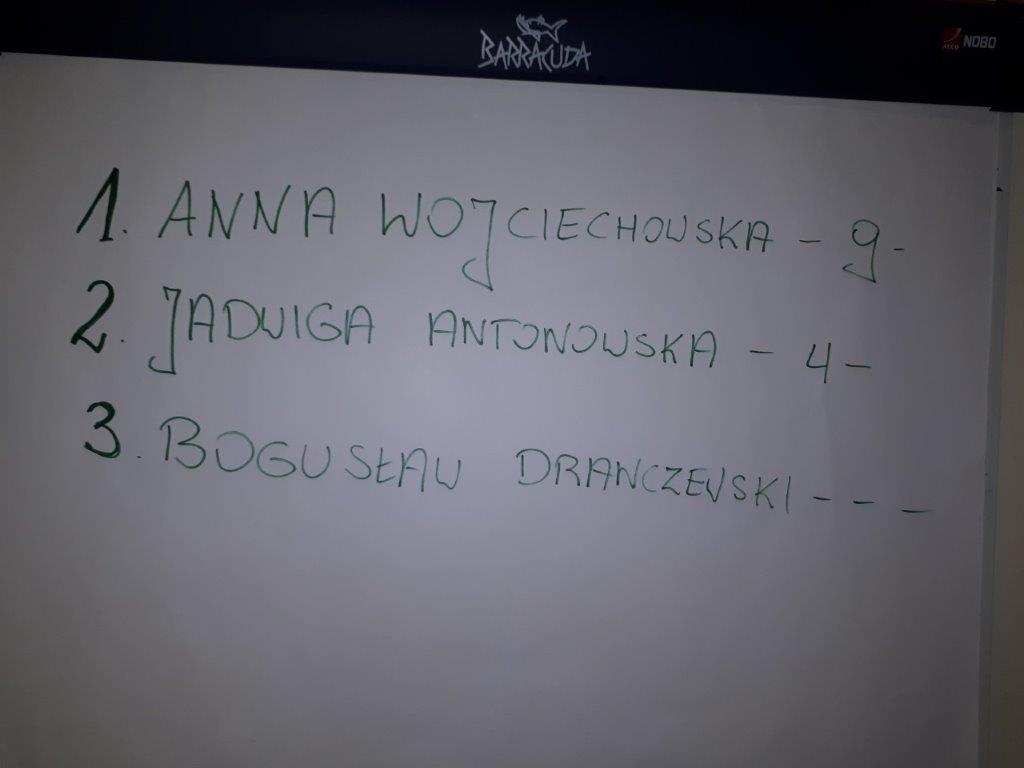 BARRACUDA
ACCO NOBO
1. ANNA WOJCIECHOWSKA - 9 -
2. JADWIGA ANTONOWSKA - 4 -
3. BOGUSŁAW DRANCZEWSKI - - -